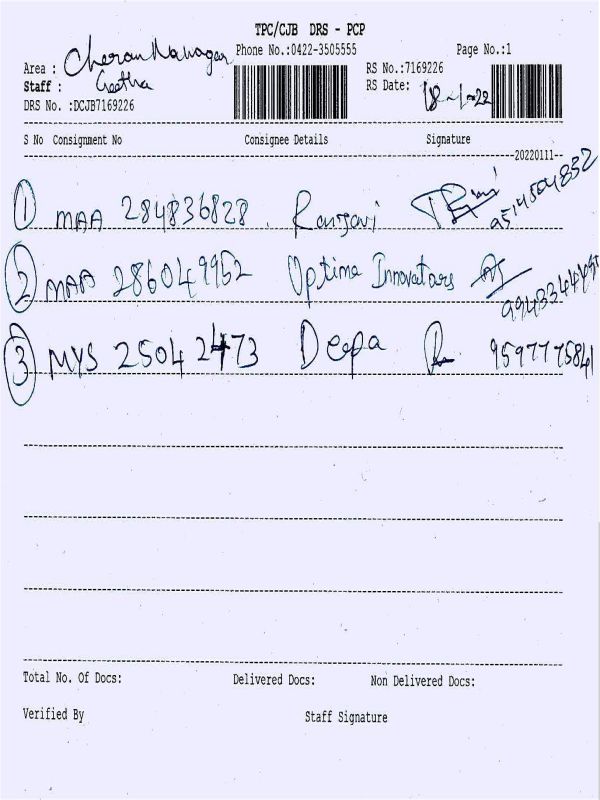 TPC/CJB DRS - PCP
Phone No.:0422-3505555 Page No.:1
Area : Cheran Managar RS No.:7169226
Staff : Geetha RS Date: 18-1-22
DRS No. :DCJB7169226
S No Consignment No Consignee Details Signature
20220111
1 MAA 284836828 Ranjavi 9514504832
2 MAA 286049952 Optima Innovators
3 MYS 25042473 Deepa 9597775841
Total No. Of Docs: Delivered Docs: Non Delivered Docs:
Verified By Staff Signature